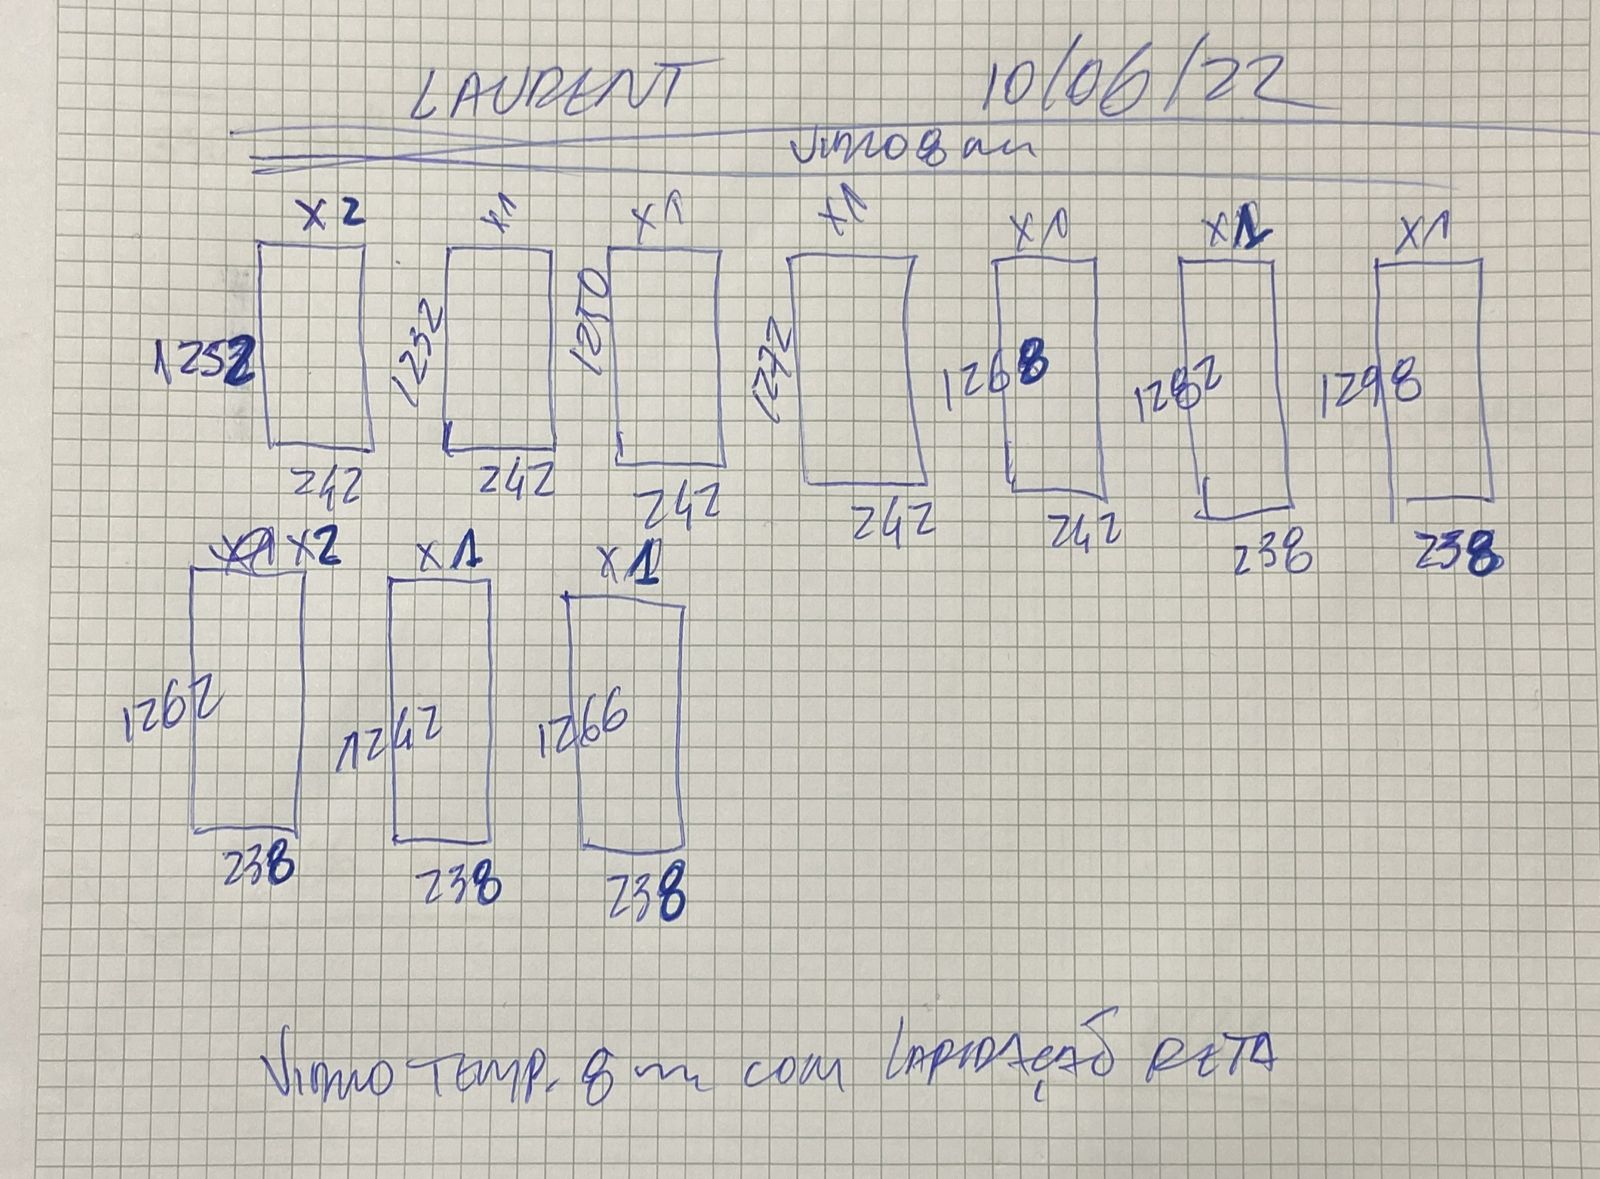 LAURENT 10/06/22
VIDRO 8 mm
x2 x1 x1 x1 x1 x1 x1
1252 1232 1250 1272 1268 1282 1298
242 242 242 242 242 238 238
x2 x1 x1
1262 1242 1266
238 238 238
VIDRO TEMP. 8 mm COM LAPIDAÇAÕ RETA